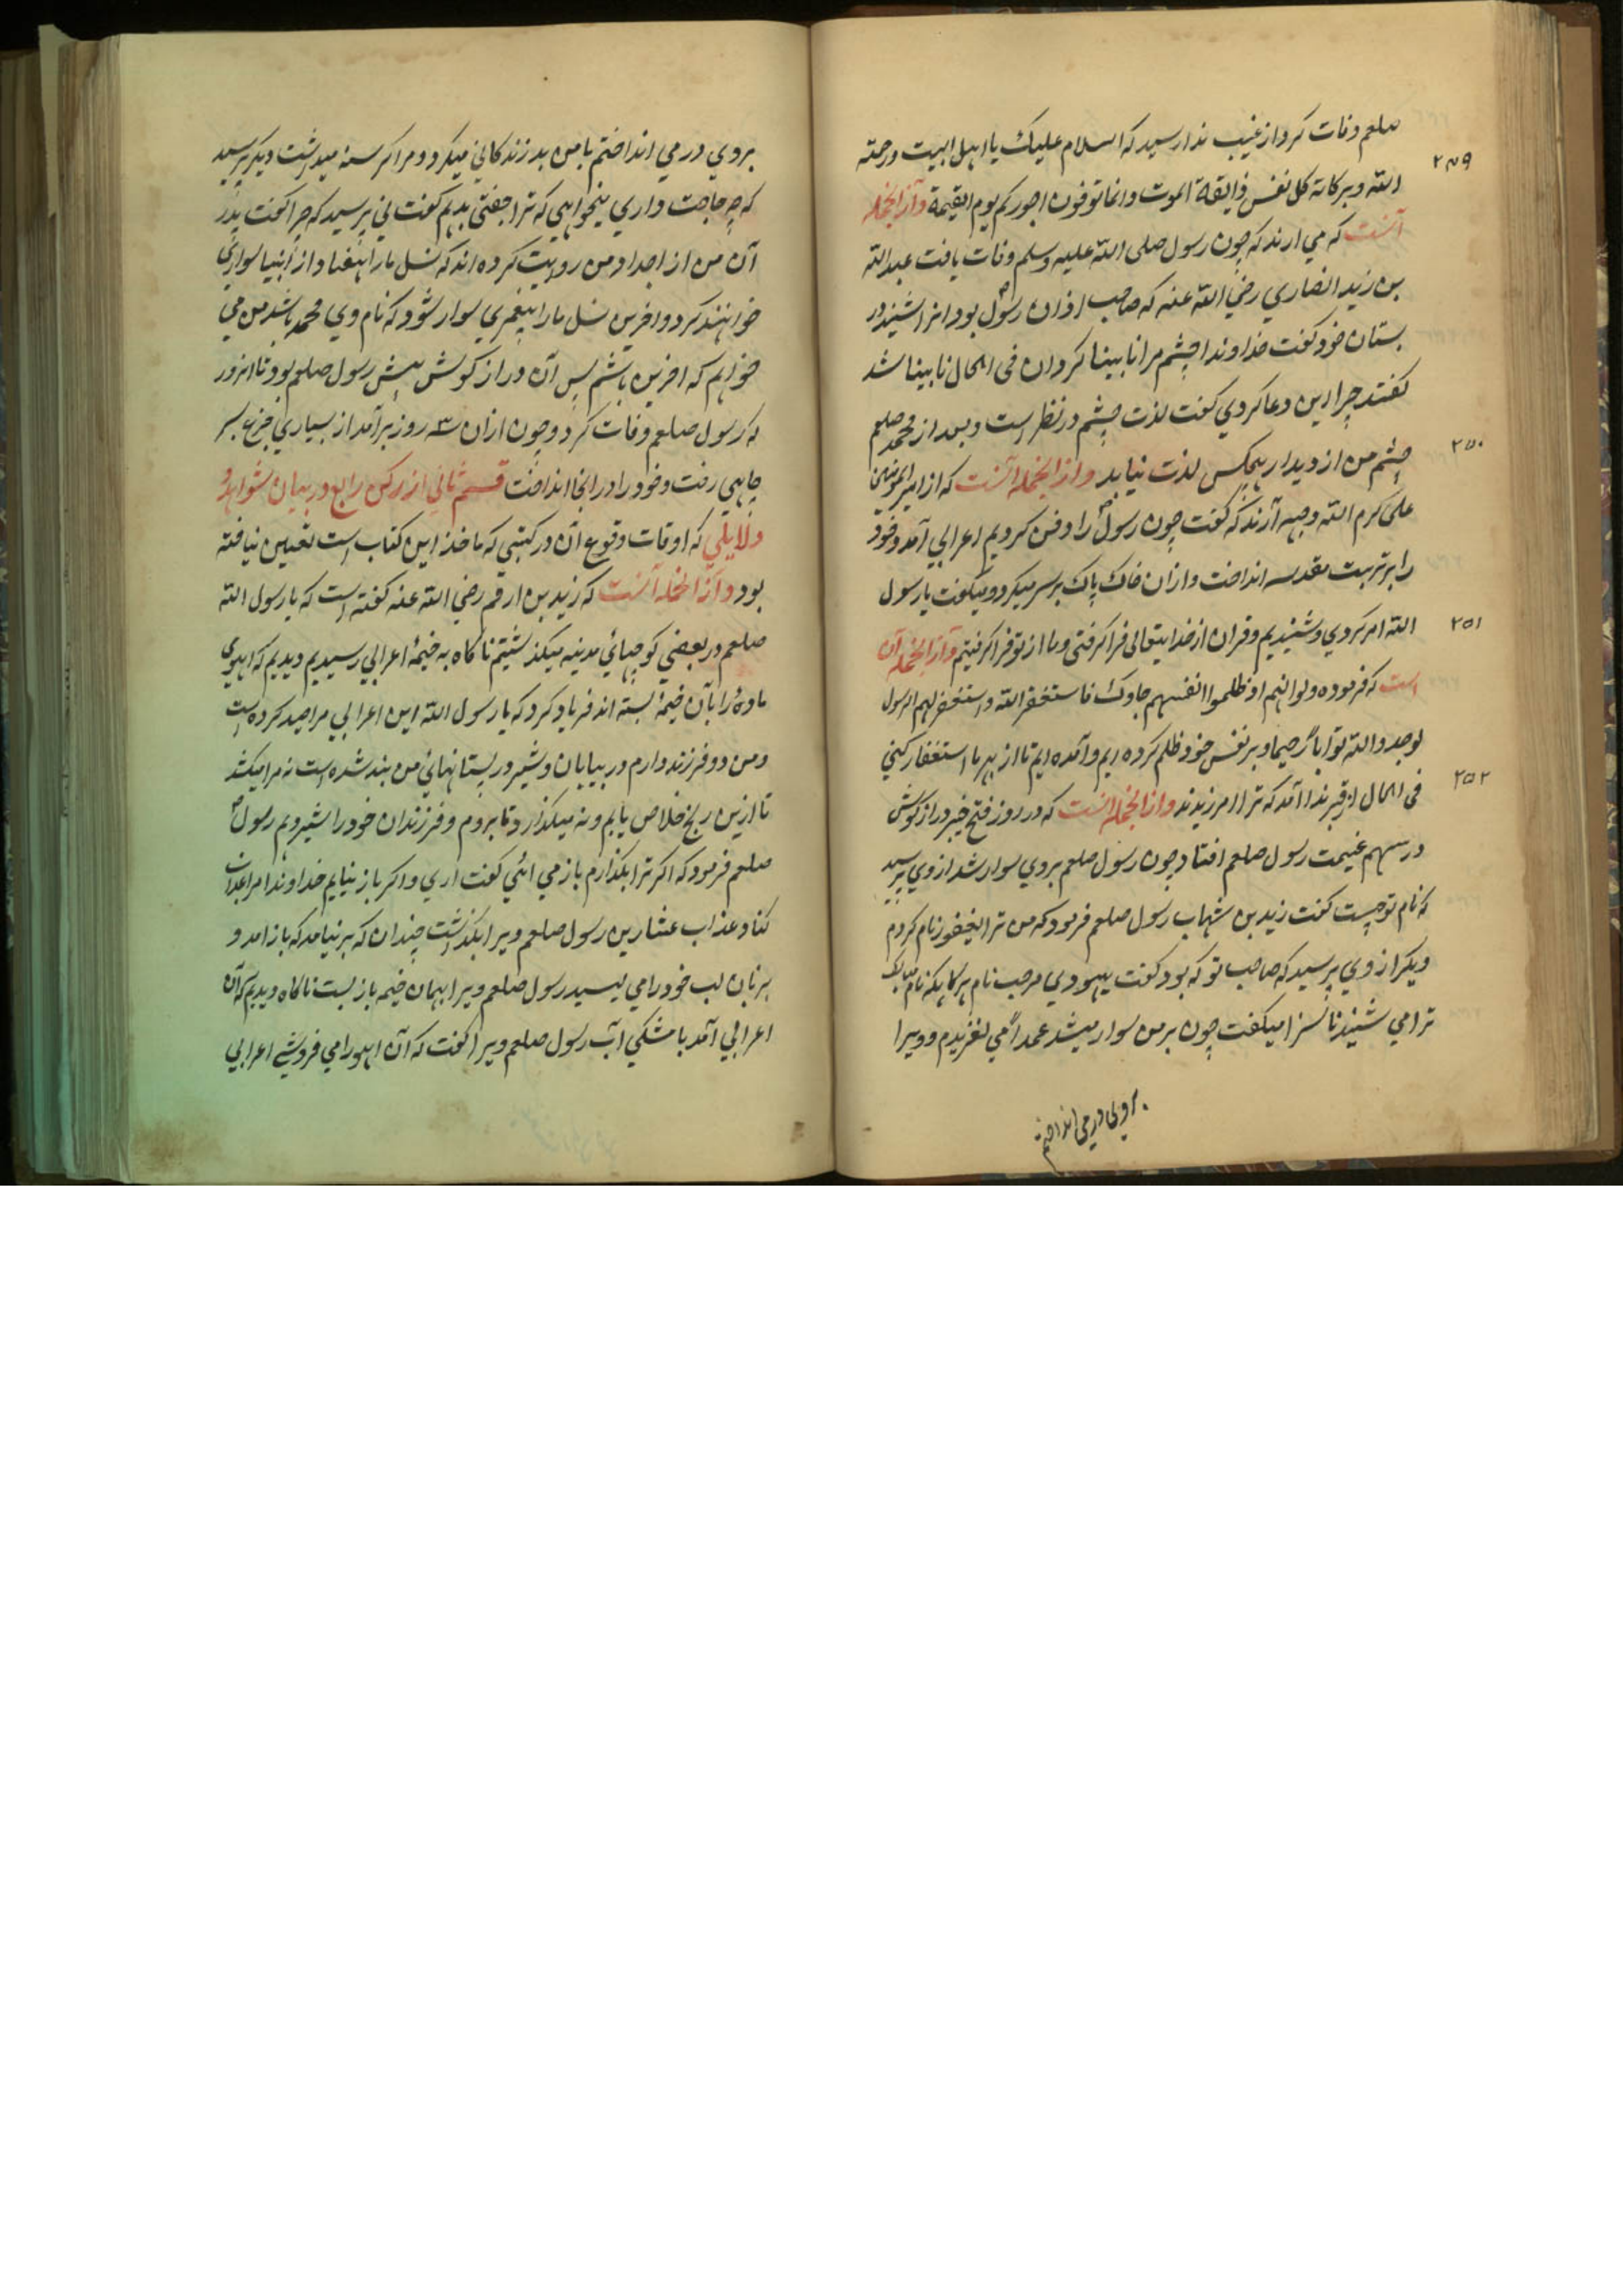 صلعم وفات کرد از غیب ندا رسید که السلام علیک یا اهل البیت ورحمة
۲۴۹
الله وبرکاته کل نفس ذایقة الموت وانما توفون اجورکم یوم القیمة وازانجمله
آنست که می ارند که چون رسول صلی الله علیه وسلم وفات یافت عبدالله
بن زید انصاری رضی الله عنه که صاحب اذان رسول بود انرا شنید در
بستان خود گفت خداوندا چشم مرا نابینا گردان فی الحال نابینا شد
گفتند چرا این دعا کردی گفت لذت چشم در نظر است وبعد از محمد صلعم
۲۵۰
چشم من از دیدار هیچکس لذت نیابد وازانجمله آنست که از امیرالمؤمنین
علی کرم الله وجهه آرند که گفت چون رسول را دفن کردیم اعرابی آمد وخود
را بر تربت مقدسه انداخت وازان خاک پاک بر سر میکرد ومیگفت یا رسول
۲۵۱
الله امر کردی وشنیدیم وقران از خدایتعالی فرا گرفتی وما از تو فرا گرفتیم وازانجمله آن
است که فرموده ولو انهم اذ ظلموا انفسهم جاوک فاستغفروا الله واستغفر لهم الرسول
لوجدوا الله توابا رحیما وبر نفس خود ظلم کرده ایم وآمده ایم تا از بهر ما استغفار کنی
۲۵۲
فی الحال از قبر ندا آمد که ترا امرزیدند وازانجمله انست که در روز فتح خیبر دراز گوش
در سهم غنیمت رسول صلعم افتاد چون رسول صلعم بروی سوار شد از وی پرسید
که نام تو چیست گفت زید بن شهاب رسول صلعم فرمود که من ترا یعفور نام کردم
دیگر از وی پرسید که صاحب تو که بود گفت یهودی مرحب نام هرگاه که نام مبارک
ترا می شنید ناسزا میگفت چون بر من سوار میشد عمداً می لغزیدم وویرا
بروی در می انداختم
بروی در می انداختم با من بد زندگانی میکرد ومرا گرسنه میداشت دیگر پرسید
که چه حاجت داری میخواهی که ترا جفتی بدهم گفت نی پرسید که چرا گفت پدر
آن من از اجداد من روایت کرده اند که نسل ما را هفتاد از انبیا سواری
خواهند کرد واخرین نسل ما را پیغمبری سوار شود که نام وی محمد باشد من می
خواهم که اخرین باشم پس آن دراز گوش پیش رسول صلعم بود تا انروز
که رسول صلعم وفات کرد وچون ازان سه روز برآمد از بسیاری جزع بسر
چاهی رفت وخود را در انجا انداخت قسم ثانی از رکن رابع در بیان شواهد و
دلایلی که اوقات وقوع آن در کتبی که ماخذ این کتاب است تعیین نیافته
بود وازانجمله آنست که زید بن ارقم رضی الله عنه گفته است که با رسول الله
صلعم در بعضی کوچهائی مدینه میگذشتیم ناگاه به خیمهٔ اعرابی رسیدیم ودیدیم که اهوی
مادهٔ را بآن خیمه بسته اند فریاد کرد که یا رسول الله این اعرابی مرا صید کرده است
ومن دو فرزند دارم در بیابان وشیر در پستانهائی من بند شده است نه مرا میکشد
تا ازین رنج خلاص یابم ونه میگذارد تا بروم وفرزندان خود را شیر دهم رسول
صلعم فرمود که اگر ترا بگذارم باز می ائی گفت اری واگر باز نیایم خداوندا مرا عذاب
کناد عذاب عشارین رسول صلعم ویرا بگذاشت چندان که برنیامد که باز امد و
بزبان لب خود را می لیسید رسول صلعم ویرا بهمان خیمه باز بست ناگاه دیدیم که آن
اعرابی آمد با مشکی آب رسول صلعم ویرا گفت که آن اهو را می فروشی اعرابی